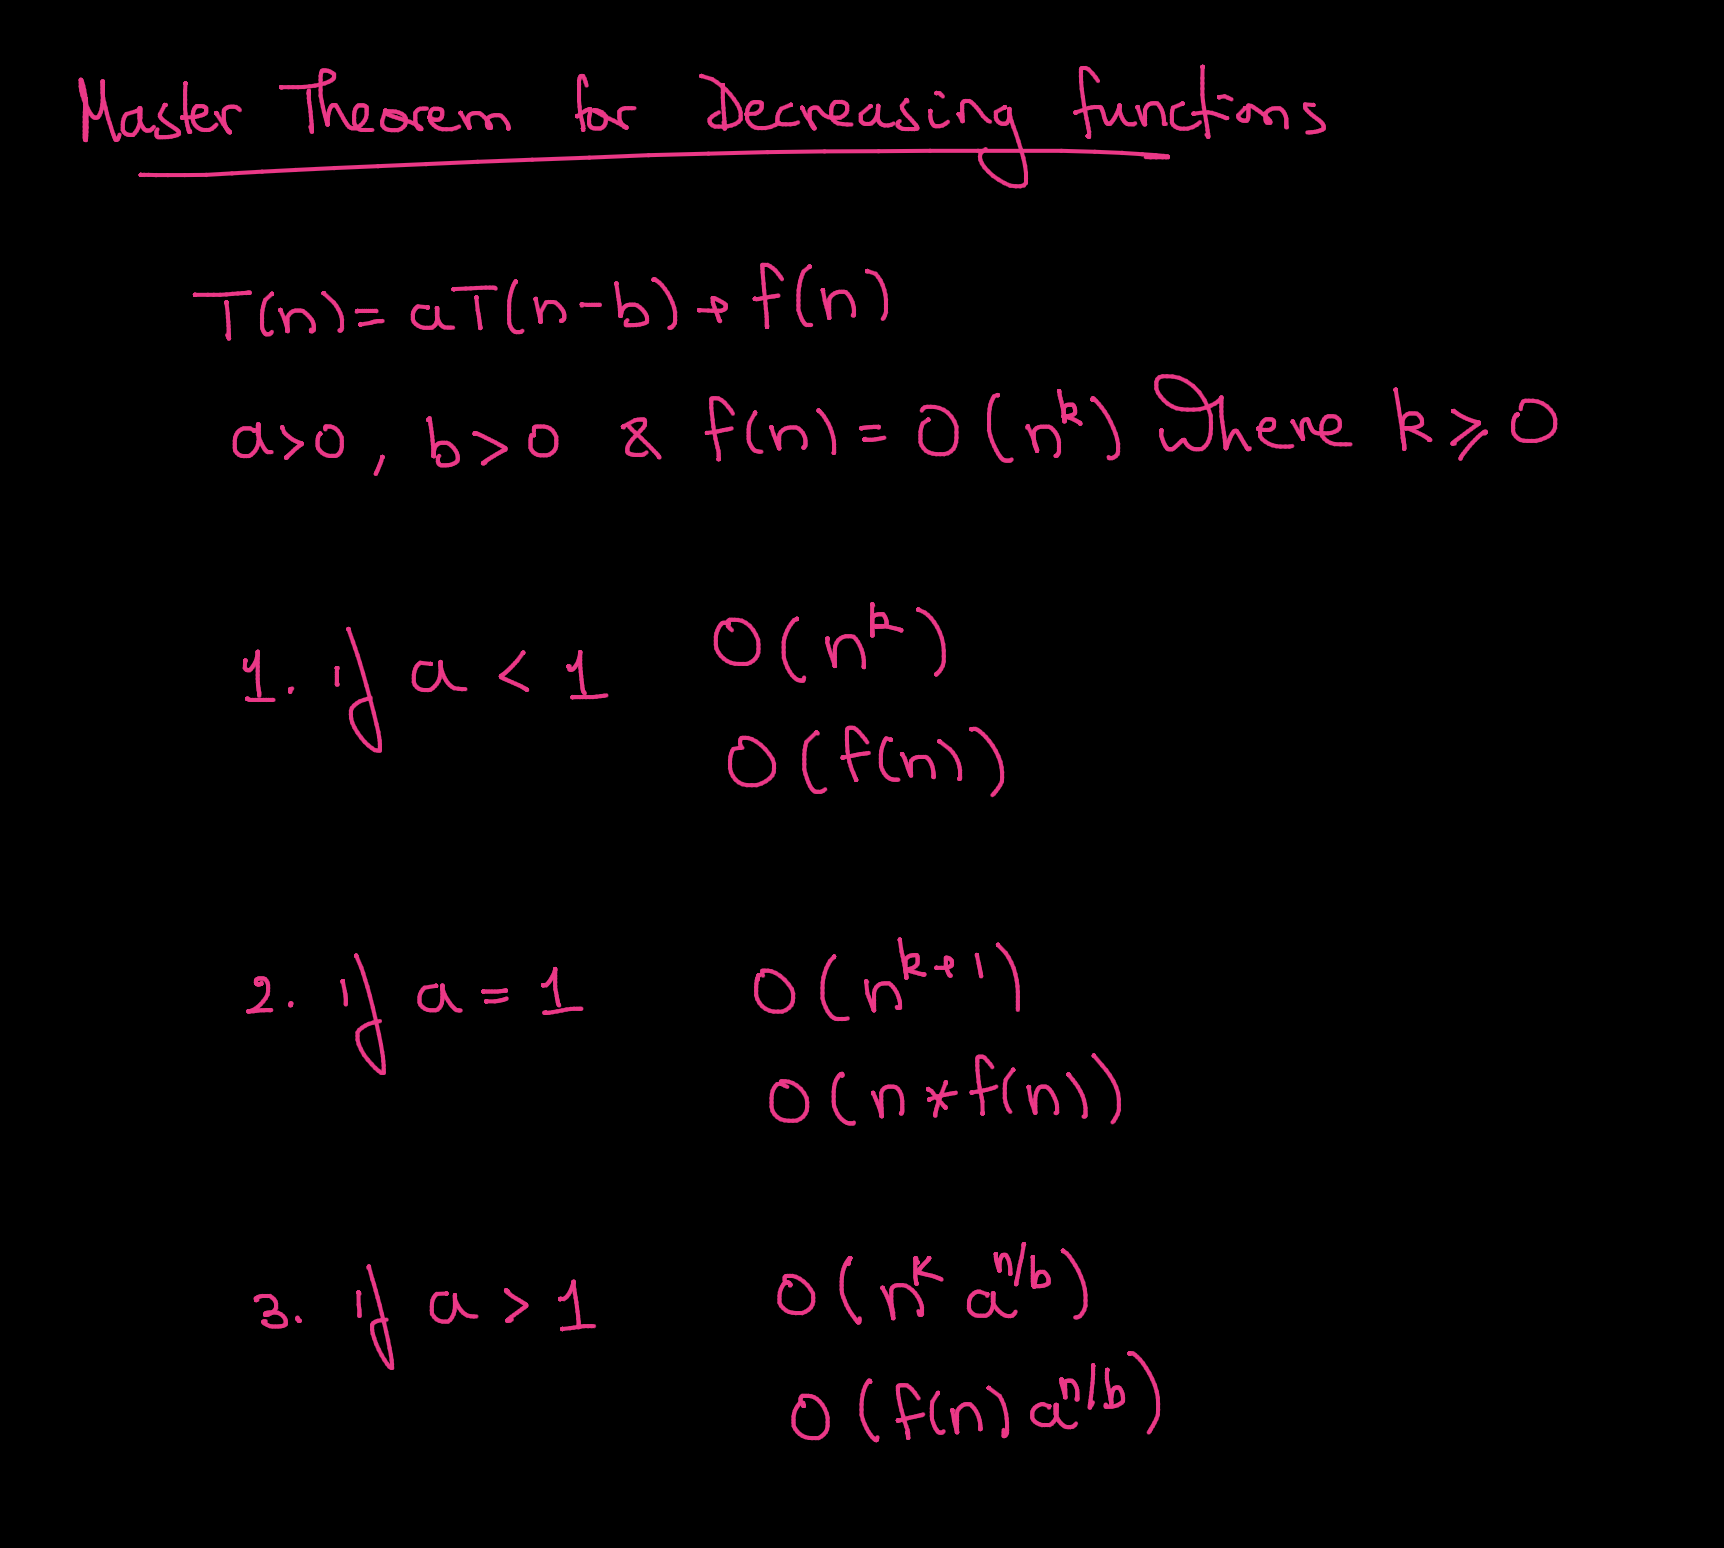 Master Theorem for Decreasing functions
T(n)= aT(n-b) + f(n)
a>0, b>0 & f(n) = O(n^k) Where k ⩾ 0
1. if a < 1 O(n^k)
O(f(n))
2. if a = 1 O(n^k+1)
O(n*f(n))
3. if a > 1 O(n^k a^n/b)
O(f(n) a^n/b)